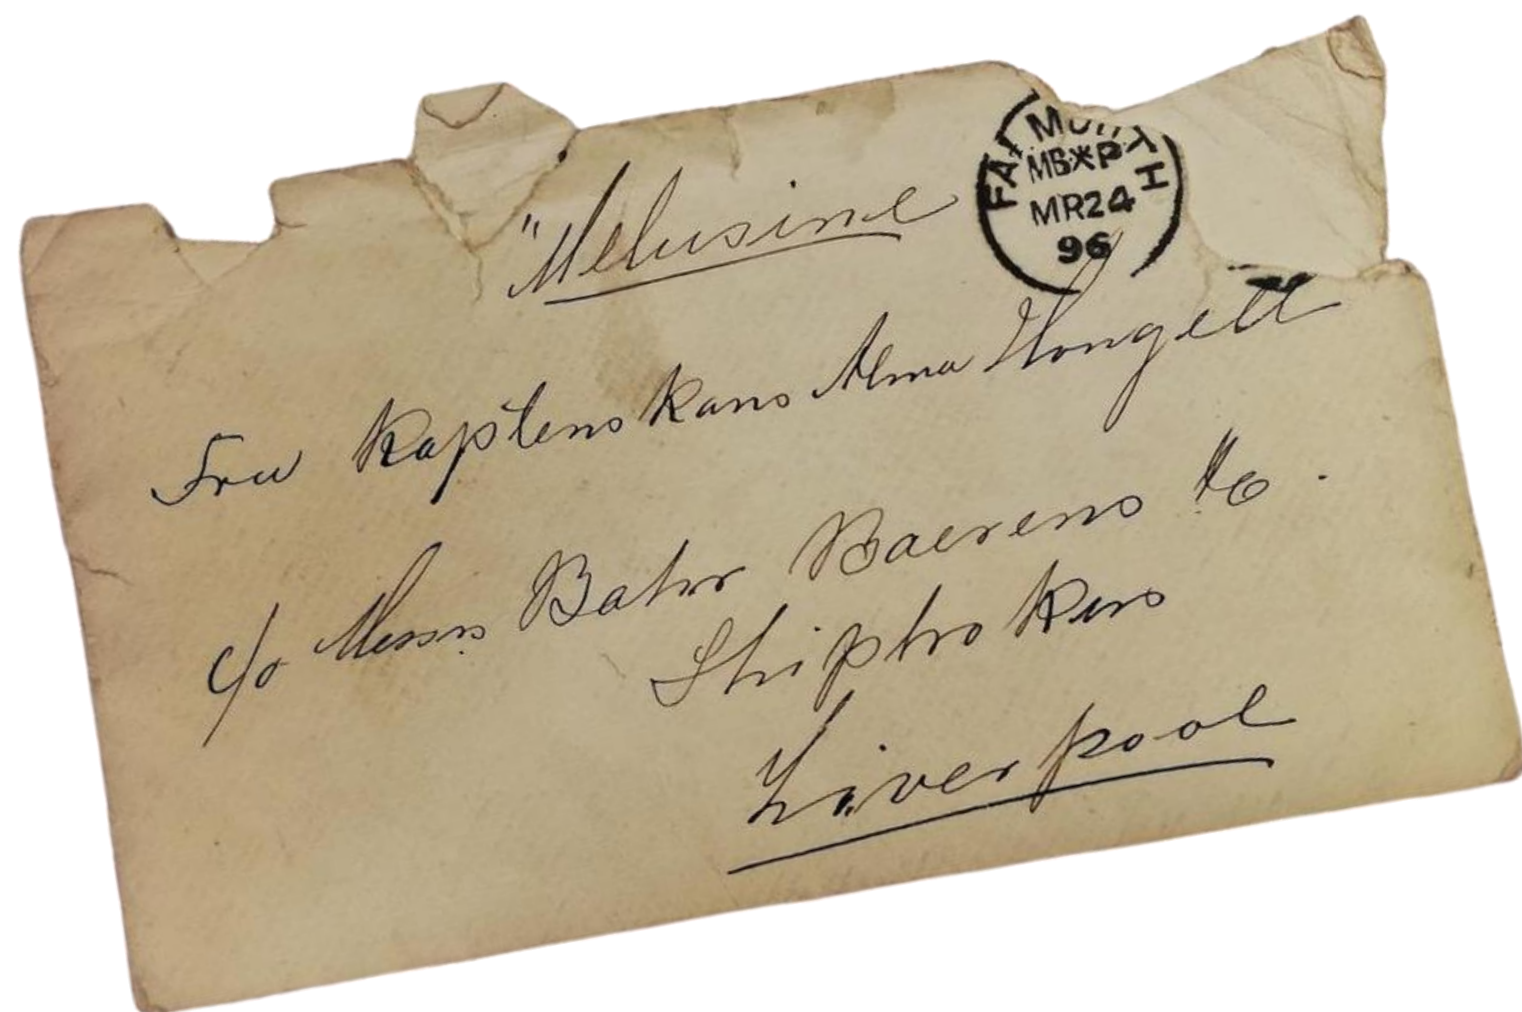 "Melusine
FALMOUTH
MB*P
MR24
96
Fru Kaptenskans Alma Hongell
c/o Messrs Bahr Baerens & Co.
Shipbrokers
Liverpool